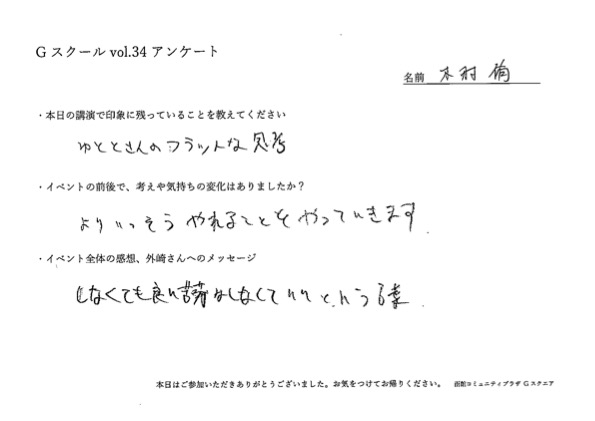 G スクール vol.34 アンケート
名前 木村
・本日の講演で印象に残っていることを教えてください
ゆととさんのフラットな思考
・イベントの前後で、考えや気持ちの変化はありましたか?
よりいっそうやれることをやっていきます。
・イベント全体の感想、外崎さんへのメッセージ
しなくても良い苦労はしなくていいという言葉.
本日はご参加いただきありがとうございました。お気をつけてお帰りください。 函館コミュニティプラザ G スクエア